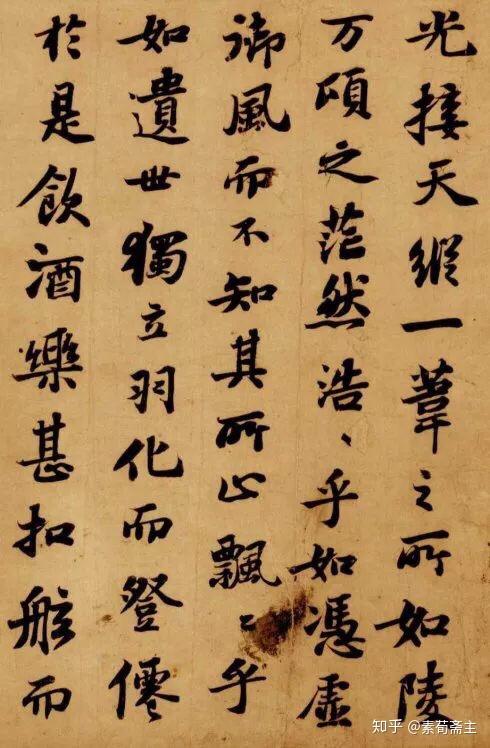 光接天縱一葦之所如陵
万頃之茫然浩〻乎如憑虛
御風而不知其所止飄〻乎
如遺世獨立羽化而登僊
於是飲酒樂甚扣舷而
知乎 @素荀斋主